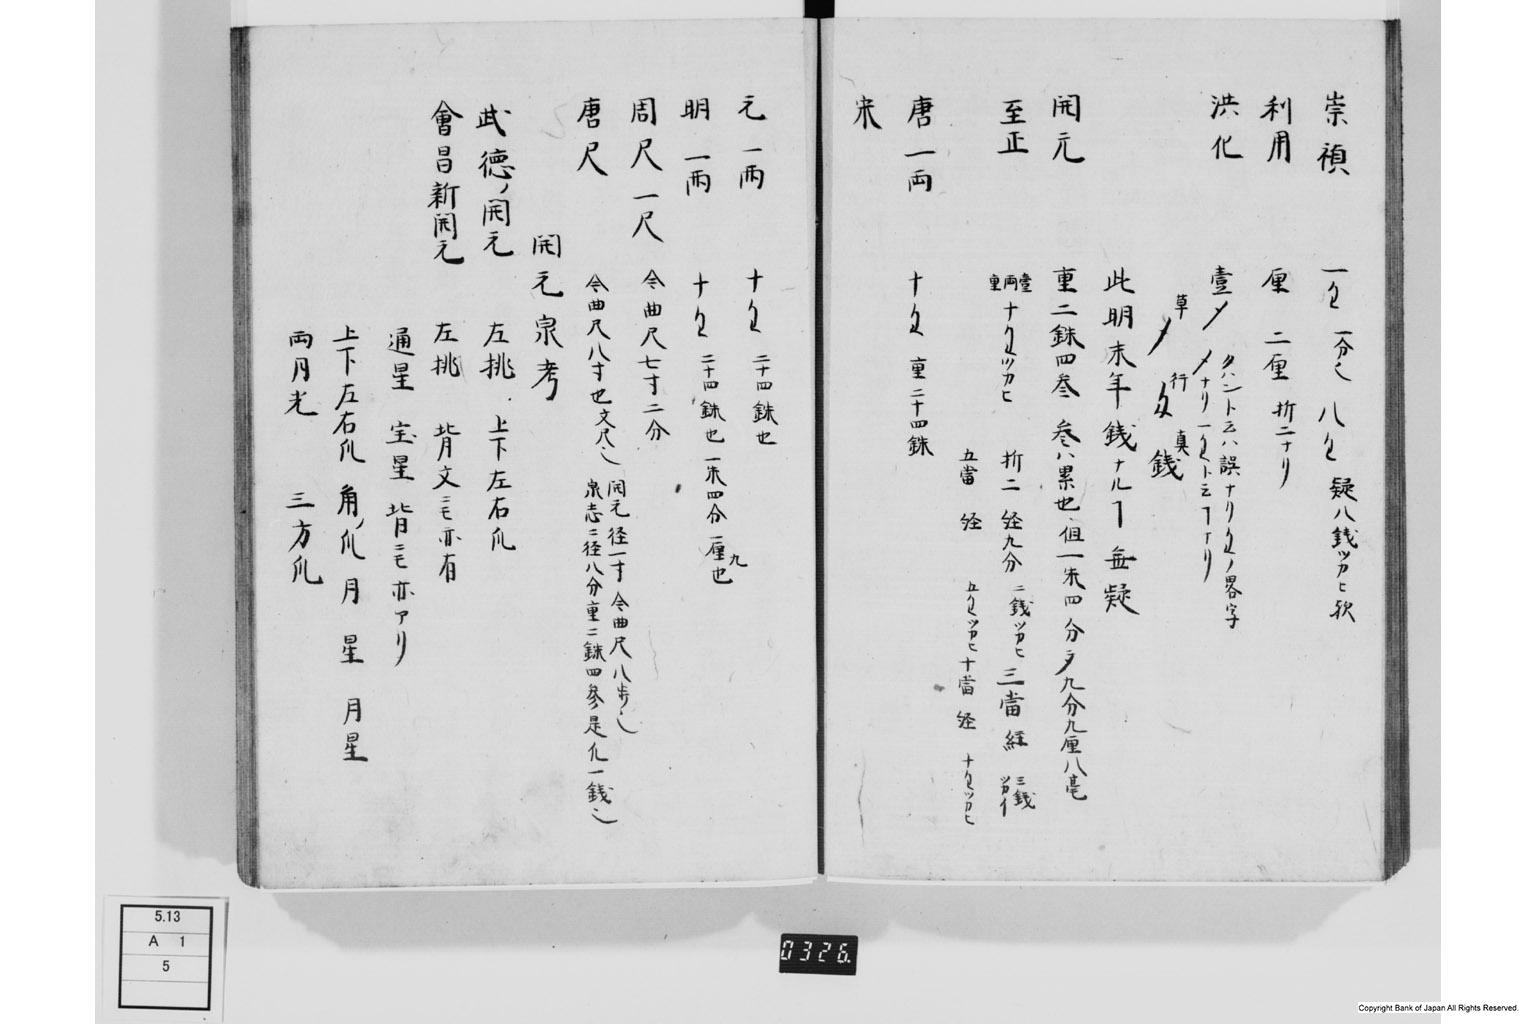 崇禎　一匁　一分也　八匁　疑八銭ツカヒ歟
利用　厘　二厘　折二ナリ
洪化　壹〆　〆ハント云ハ誤ナリ匁ノ畧字
〆ナリ一匁ト云ヿナリ
草〆　行匁　真銭
此明末年銭ナルヿ無疑
開元　重二銖四叁　叁ハ累也但一朱四分〆九分九厘八毫
至正　壹両重十匁ツカヒ　折二　径九分　二銭ツカヒ　三當　経　三銭ツカイ
五當　径　五匁ツカヒ　十當　径　十匁ツカヒ
唐一両　十匁　重二十四銖
宋
元一両　十匁　二十四銖也
明一両　十匁　二十四銖也　一朱四分一厘九也
周尺一尺　令曲尺七寸二分
唐尺　令曲尺八寸也文尺也　開元径一寸令曲尺八歩也
泉志ニ径八分重二銖四參是凡一銭也
開元泉考
武德ノ開元　左挑　上下左右爪
會昌新開元　左挑　背文ニモ亦有
通星　宝星　背ニモ亦アリ
上下左右爪　角ノ爪　月　星　月星
両月光　三方爪
5.13
A 1
5
0326
Copyright Bank of Japan All Rights Reserved.